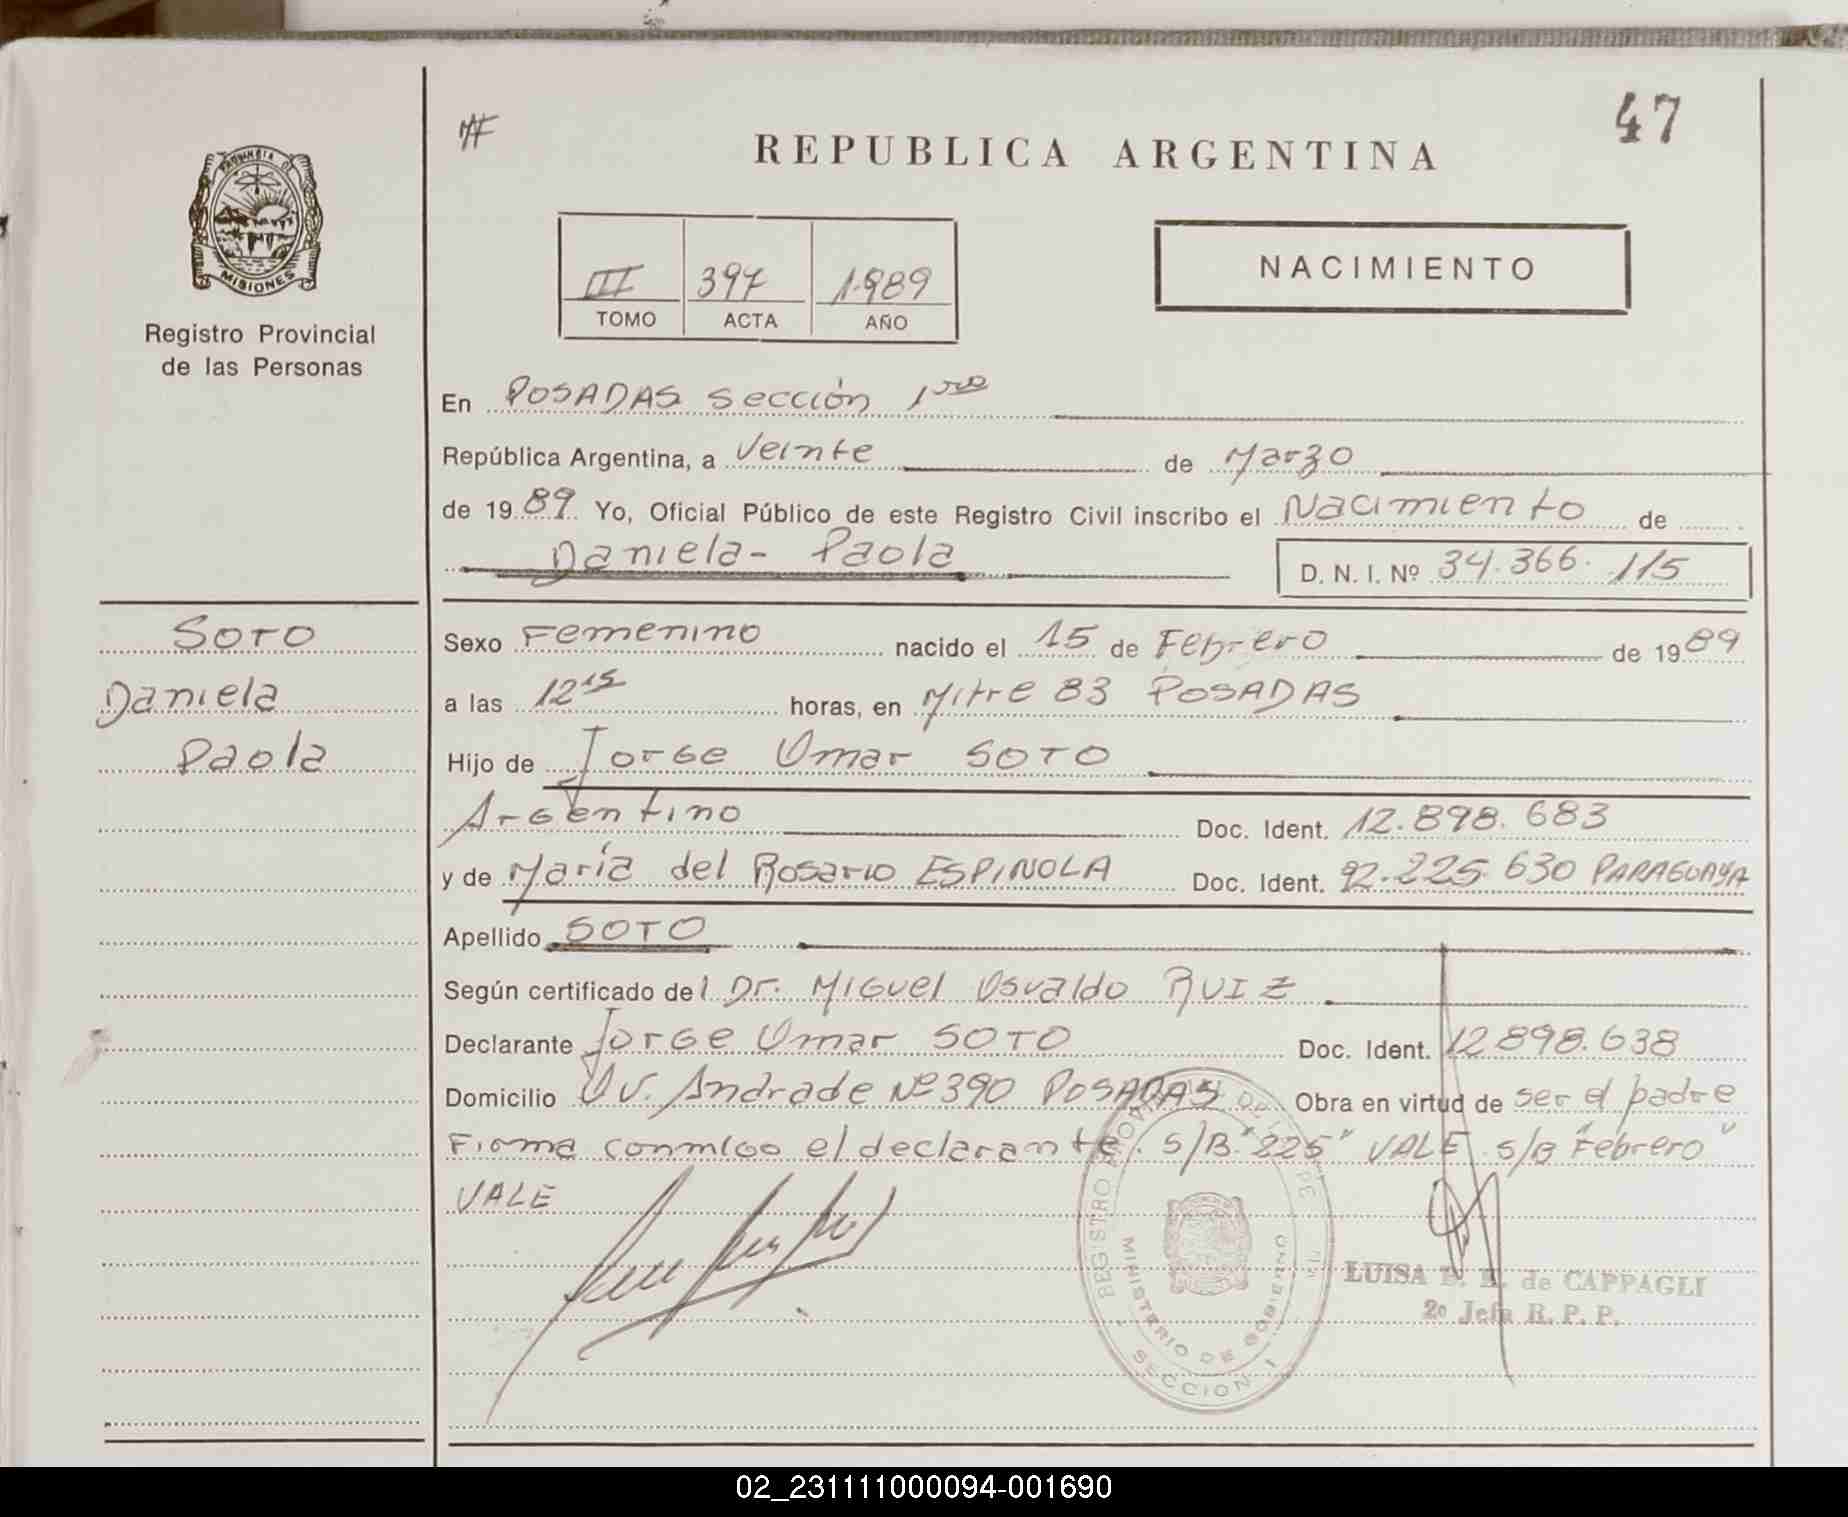 47
REPUBLICA ARGENTINA
PROVINCIA DE
MISIONES
Registro Provincial
de las Personas
NACIMIENTO
III 397 1989
TOMO ACTA AÑO
En POSADAS sección 1ra
República Argentina, a Veinte de Marzo
de 1989 Yo, Oficial Público de este Registro Civil inscribo el Nacimiento de
Daniela- Paola D. N. I. Nº 34.366.115
SOTO
Daniela
Paola
Sexo Femenino nacido el 15 de Febrero de 1989
a las 12 15 horas, en Mitre 83 POSADAS
Hijo de Jorge Omar SOTO
Argentino Doc. Ident. 12.898.683
y de María del Rosario ESPINOLA Doc. Ident. 92.225.630 PARAGUAYA
Apellido SOTO
Según certificado del Dr. Miguel Osvaldo RUIZ
Declarante Jorge Omar SOTO Doc. Ident. 12.898.638
Domicilio Av. Andrade Nº 390 POSADAS Obra en virtud de ser el padre
Firma conmigo el declarante. S/B "225" VALE S/B "Febrero"
VALE
REGISTRO DE
MINISTERIO DE GOBIERNO
SECCION 1
LUISA de CAPPAGLI
2º Jefa R. P. P.
02_231111000094-001690